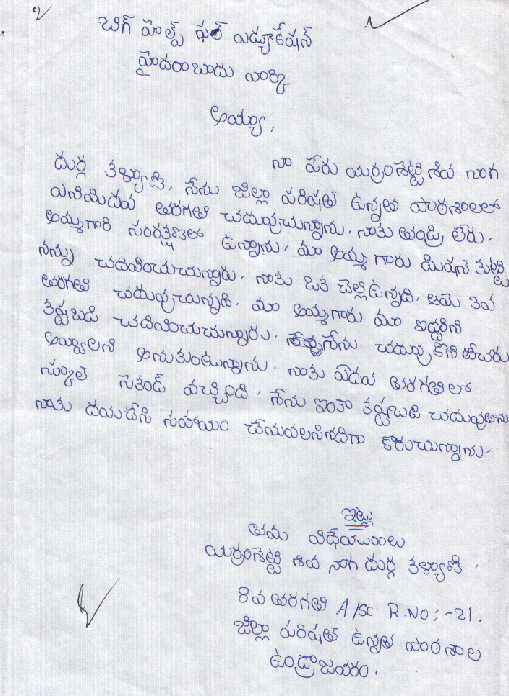 బిగ్ హెల్ప్ ఫర్ ఎడ్యుకేషన్
హైదరాబాదు వారికి
అయ్యా,
నా పేరు యర్రంశెట్టి శివ నాగ
దుర్గ కళ్యాణి. నేను జిల్లా పరిషత్ ఉన్నత పాఠశాలలో
ఎనిమిదవ తరగతి చదువుచున్నాను. నాకు తండ్రి లేరు.
అమ్మగారి సంరక్షణలో ఉన్నాను. మా అమ్మ గారు మిషను కుట్టి
నన్ను చదివించుచున్నారు. నాకు ఒక చెల్లి ఉన్నది. ఆమె
తరగతి చదువుచున్నది. మా అమ్మగారు మా ఇద్దరిని
కష్టపడి చదివించుచున్నారు. నేను చదువుకొని టీచరు
అవ్వాలని అనుకుంటున్నాను. నాకు ఏడవ తరగతిలో
స్కూల్ సెకండ్ వచ్చింది. నేను ఇంకా కష్టపడి చదువుతాను
నాకు దయచేసి సహాయం చేయవలసినదిగా కోరుచున్నాను.
ఇట్లు
తమ విధేయురాలు
యర్రంశెట్టి శివ నాగ దుర్గ కళ్యాణి.
8వ తరగతి A/sc R.No:-21.
జిల్లా పరిషత్ ఉన్నత పాఠశాల
ఉండ్రాజవరం.